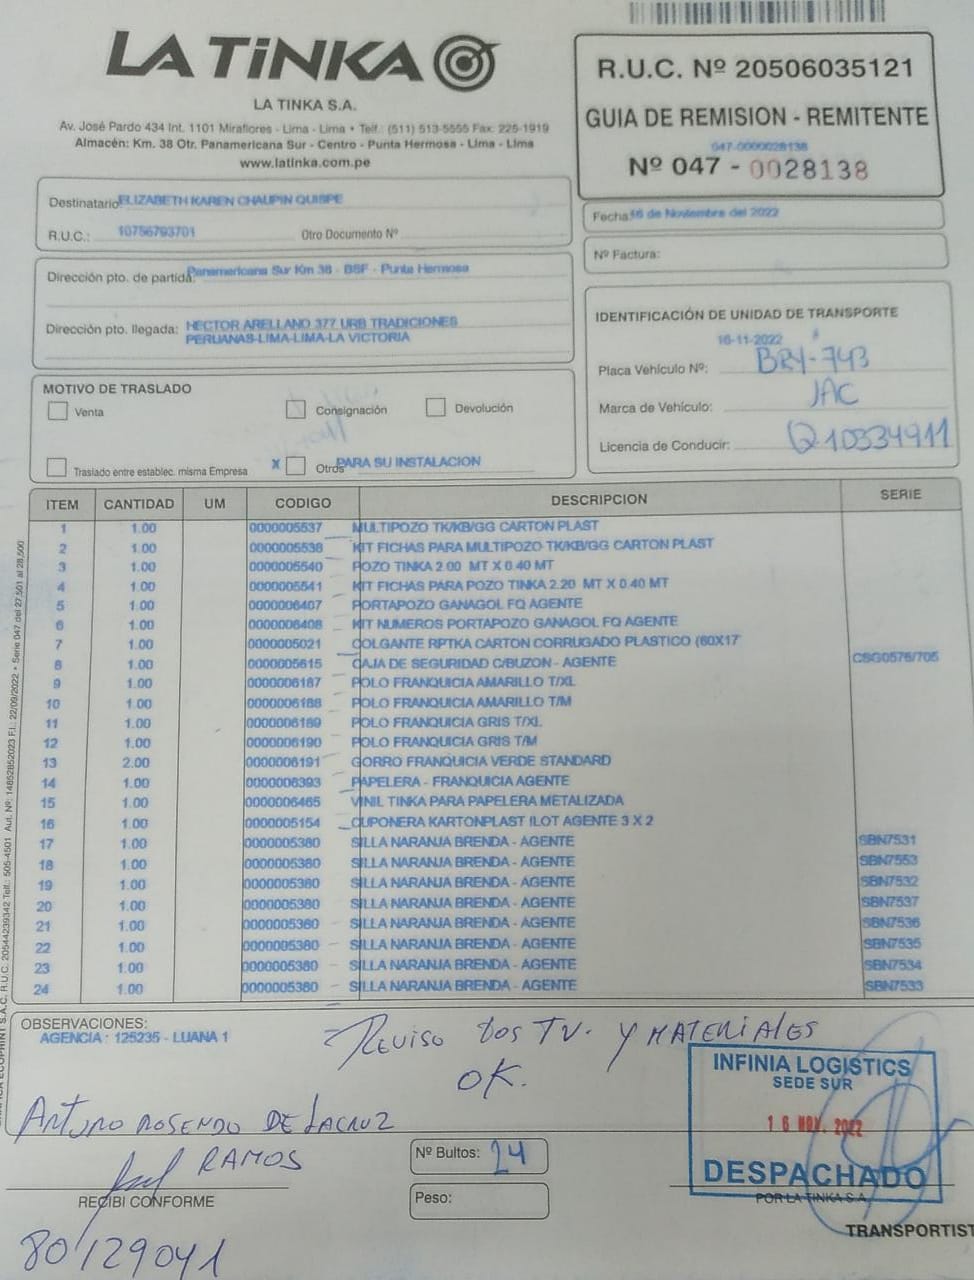 LA TiNKA
LA TINKA S.A.
Av. José Pardo 434 Int. 1101 Miraflores - Lima - Lima • Telf.: (511) 513-5555 Fax: 225-1919
Almacén: Km. 38 Otr. Panamericana Sur - Centro - Punta Hermosa - Lima - Lima
www.latinka.com.pe
R.U.C. Nº 20506035121
GUIA DE REMISION - REMITENTE
047-0000028138
Nº 047 - 0028138
Destinatario ELIZABETH KAREN CHAUPIN QUISPE
R.U.C.: 10756793701 Otro Documento Nº
Fecha: 16 de Noviembre del 2022
Nº Factura:
Dirección pto. de partida: Panamericana Sur Km 38 - BSF - Punta Hermosa
Dirección pto. llegada: HECTOR ARELLANO 377 URB TRADICIONES
PERUANAS-LIMA-LIMA-LA VICTORIA
IDENTIFICACIÓN DE UNIDAD DE TRANSPORTE
16-11-2022
Placa Vehículo Nº: BRY-743
Marca de Vehículo: JAC
Licencia de Conducir: Q10334911
MOTIVO DE TRASLADO
Venta Consignación Devolución
Traslado entre establec. misma Empresa X Otros PARA SU INSTALACION
ITEM CANTIDAD UM CODIGO DESCRIPCION SERIE
1 1.00 0000005537 MULTIPOZO TK/KB/GG CARTON PLAST
2 1.00 0000005538 KIT FICHAS PARA MULTIPOZO TK/KB/GG CARTON PLAST
3 1.00 0000005540 POZO TINKA 2.00 MT X 0.40 MT
4 1.00 0000005541 KIT FICHAS PARA POZO TINKA 2.20 MT X 0.40 MT
5 1.00 0000006407 PORTAPOZO GANAGOL FQ AGENTE
6 1.00 0000006408 KIT NUMEROS PORTAPOZO GANAGOL FQ AGENTE
7 1.00 0000005021 COLGANTE RPTKA CARTON CORRUGADO PLASTICO (60X17
8 1.00 0000005615 CAJA DE SEGURIDAD C/BUZON - AGENTE CSG0576/705
9 1.00 0000006187 POLO FRANQUICIA AMARILLO T/XL
10 1.00 0000006188 POLO FRANQUICIA AMARILLO T/M
11 1.00 0000006189 POLO FRANQUICIA GRIS T/XL
12 1.00 0000006190 POLO FRANQUICIA GRIS T/M
13 2.00 0000006191 GORRO FRANQUICIA VERDE STANDARD
14 1.00 0000006393 PAPELERA - FRANQUICIA AGENTE
15 1.00 0000006465 VINIL TINKA PARA PAPELERA METALIZADA
16 1.00 0000005154 CUPONERA KARTONPLAST ILOT AGENTE 3 X 2
17 1.00 0000005380 SILLA NARANJA BRENDA - AGENTE SBN7531
18 1.00 0000005380 SILLA NARANJA BRENDA - AGENTE SBN7553
19 1.00 0000005380 SILLA NARANJA BRENDA - AGENTE SBN7532
20 1.00 0000005380 SILLA NARANJA BRENDA - AGENTE SBN7537
21 1.00 0000005380 SILLA NARANJA BRENDA - AGENTE SBN7536
22 1.00 0000005380 SILLA NARANJA BRENDA - AGENTE SBN7535
23 1.00 0000005380 SILLA NARANJA BRENDA - AGENTE SBN7534
24 1.00 0000005380 SILLA NARANJA BRENDA - AGENTE SBN7533
OBSERVACIONES:
AGENCIA : 125235 - LUANA 1
REVISO DOS TV. Y MATERIALES
OK.
ARTURO ROSENDO DE LACRUZ
RAMOS
RECIBI CONFORME
80129041
Nº Bultos: 24
Peso:
INFINIA LOGISTICS
SEDE SUR
16 NOV. 2022
DESPACHADO
POR LA TINKA S.A.
TRANSPORTIST